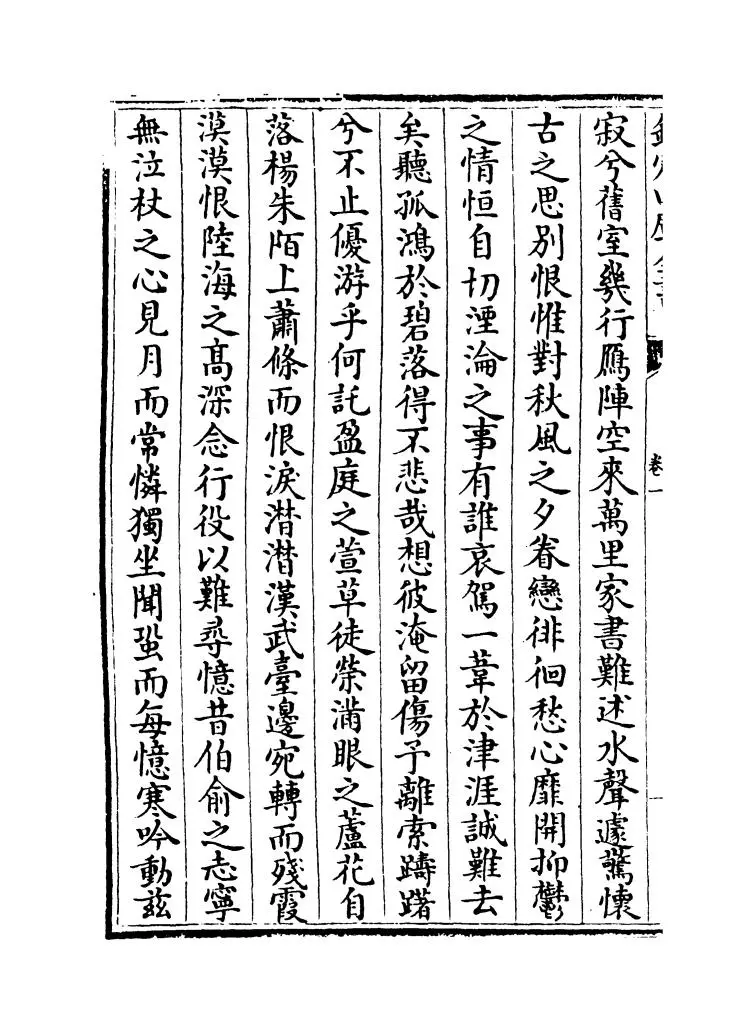 卷一
寂兮舊室幾行鴈陣空來萬里家書難述水聲遽驚懷
古之思別恨惟對秋風之夕眷戀徘徊愁心靡開抑鬱
之情恒自切湮淪之事有誰哀駕一葦於津涯誠難去
矣聽孤鴻於碧落得不悲哉想彼淹留傷予離索躊躇
兮不止優游乎何託盈庭之萱草徒榮滿眼之蘆花自
落楊朱陌上蕭條而恨淚潸潸漢武臺邊宛轉而殘霞
漠漠恨陸海之髙深念行役以難尋憶昔伯俞之志寧
無泣杖之心見月而常憐獨坐聞蛩而每憶寒吟動兹